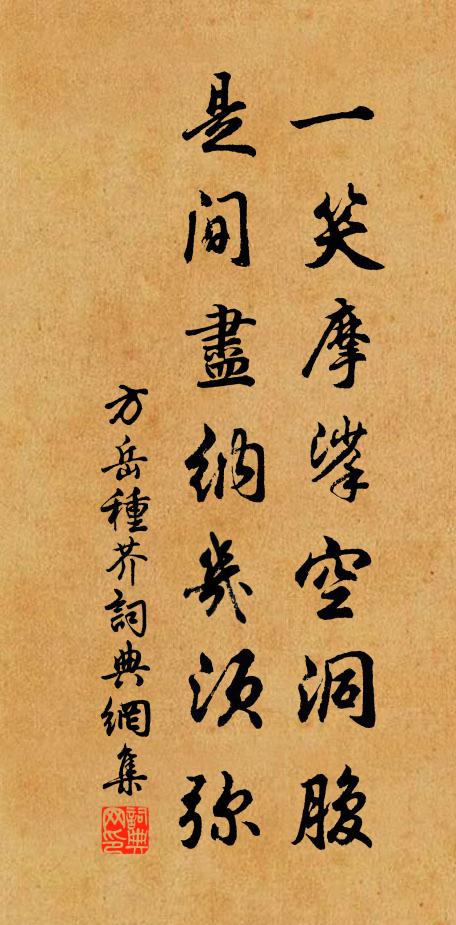 一笑摩挲空洞腹
是间盡納幾須弥
方岳種芥詞典網集
詞典网印